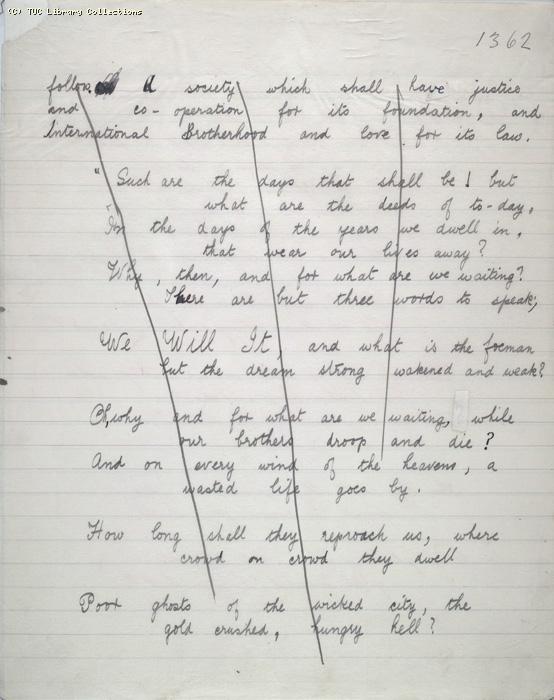 (C) TUC Library Collections
1362
follow. A society which shall have justice
and co-operation for its foundation, and
International Brotherhood and love for its law.
"Such are the days that shall be! but
what are the deeds of to-day,
In the days of the years we dwell in,
that wear our lives away?
Why, then, and for what are we waiting?
There are but three words to speak;
We Will It, and what is the foeman
but the dream strong wakened and weak?
Oh, why and for what are we waiting, while
our brothers droop and die?
And on every wind of the heavens, a
wasted life goes by.
How long shall they reproach us, where
crowd on crowd they dwell
Poor ghosts of the wicked city, the
gold crushed, hungry hell?